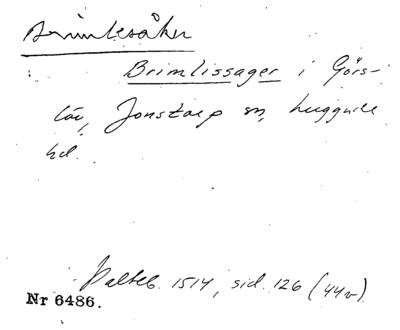 Brimlesåker
Brimlissager i Görs-
löv, Jonstorp sn, Luggude
hd.
Palteb. 1514, sid. 126 (44v)
Nr 6486.